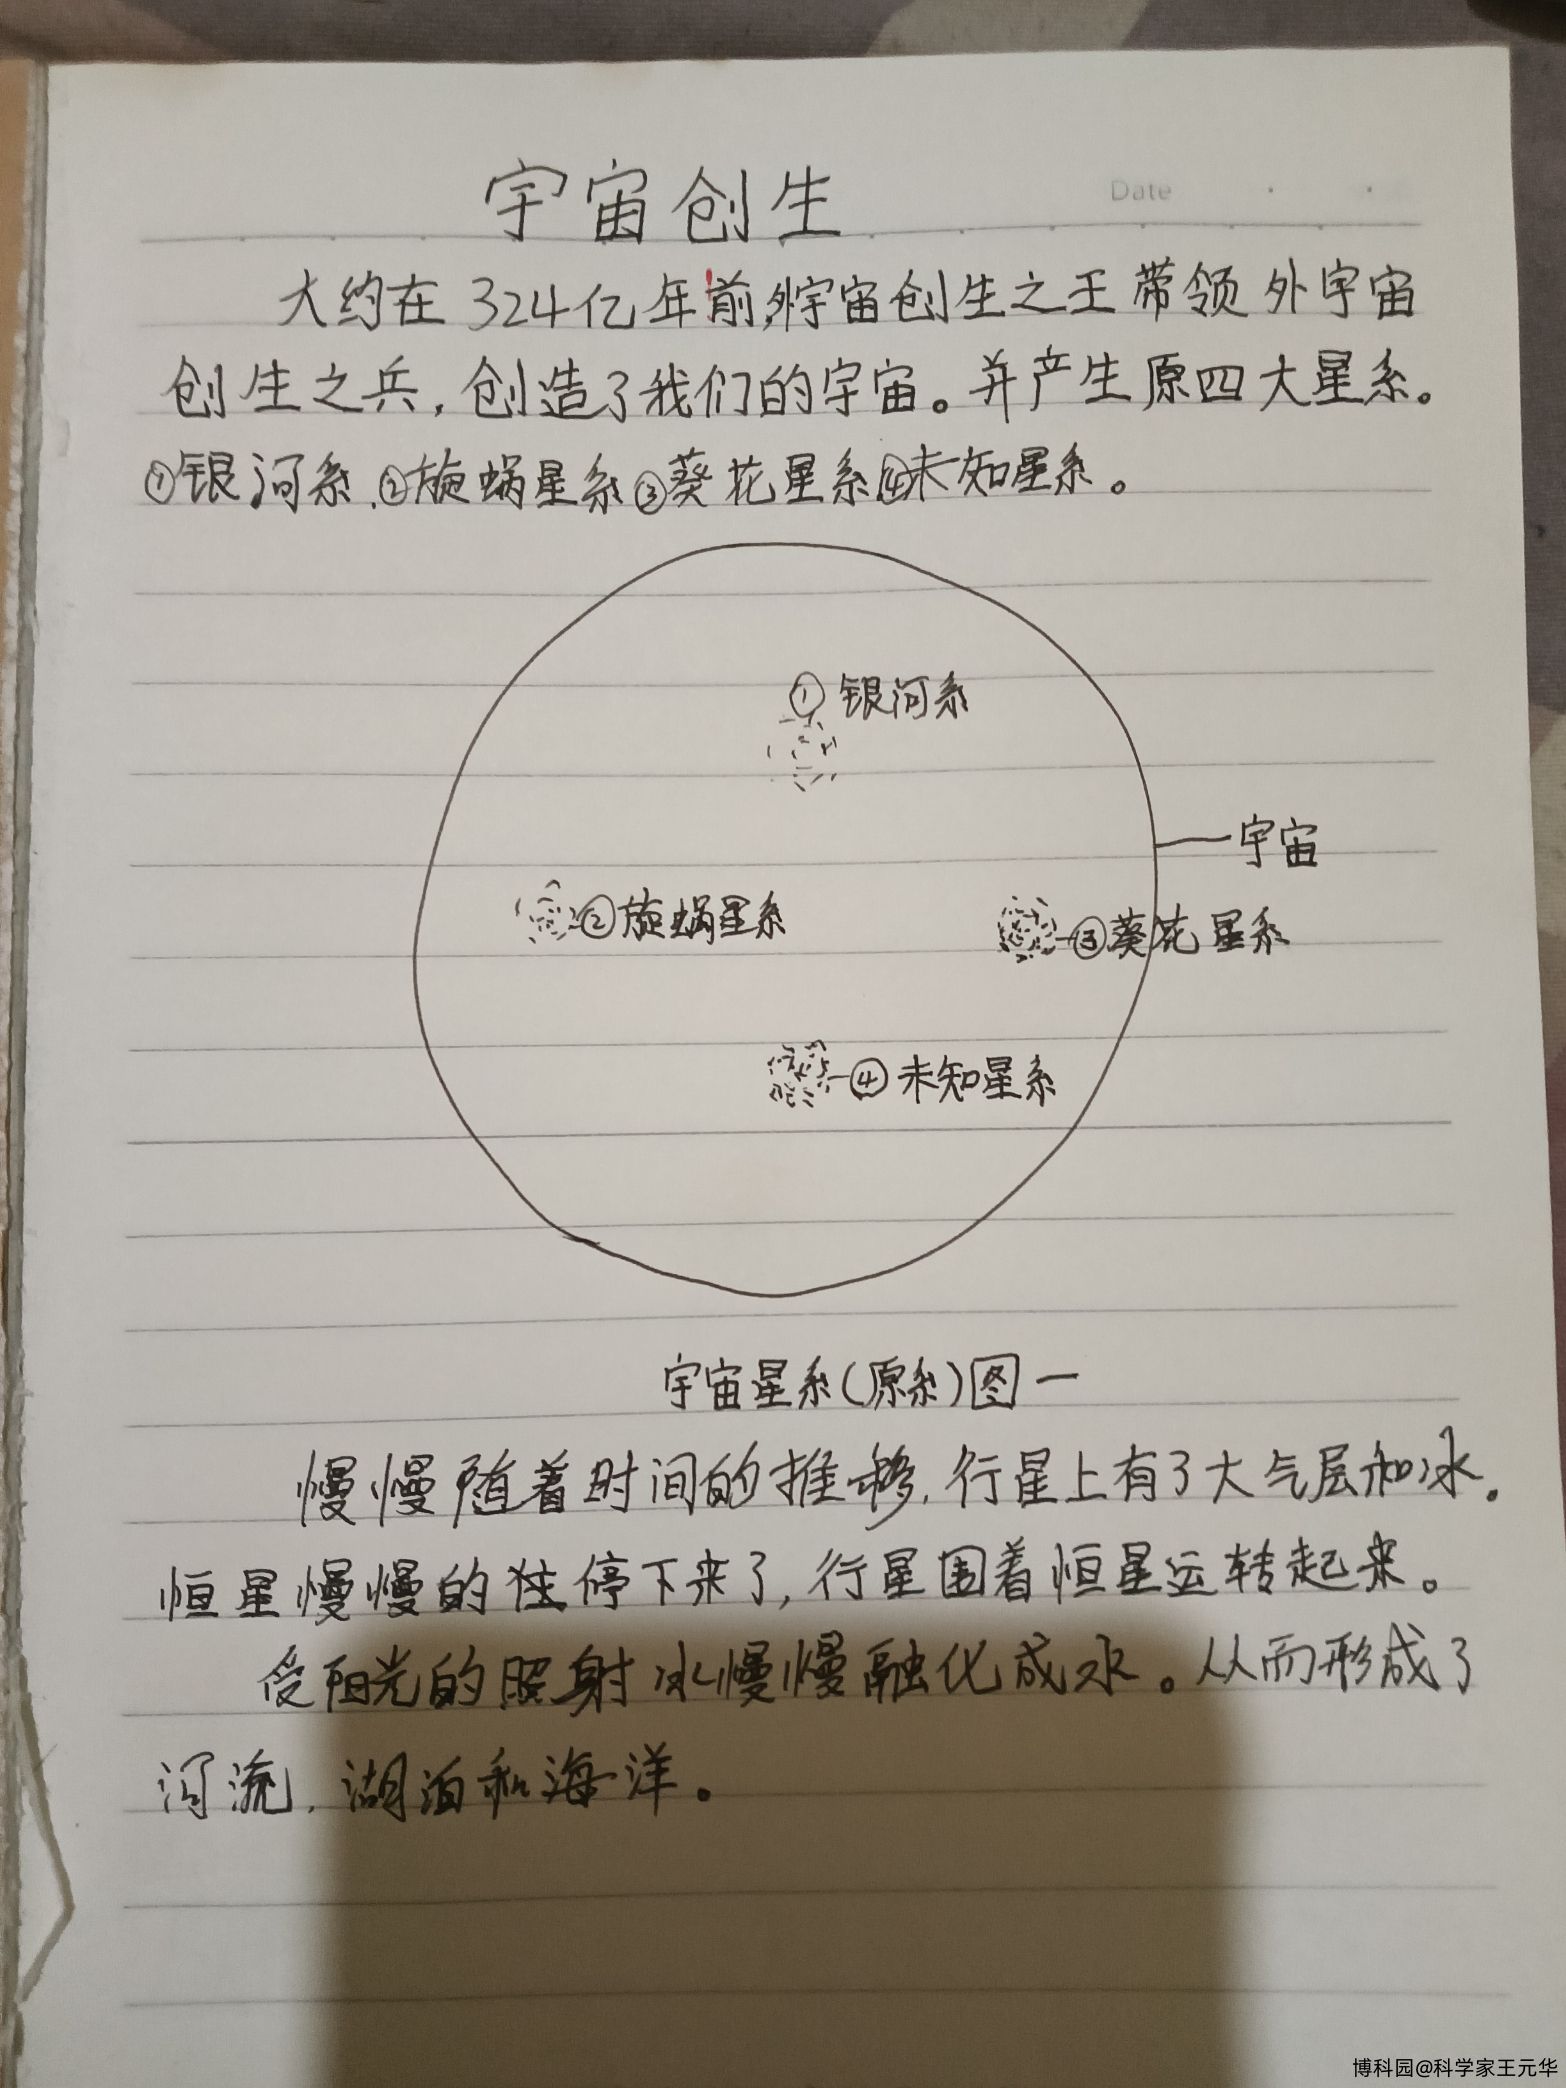 宇宙创生
Date
大约在324亿年前,外宇宙创生之王带领外宇宙
创生之兵,创造了我们的宇宙。并产生原四大星系。
①银河系.②旋蜗星系③葵花星系④未知星系。
①银河系
宇宙
②旋蜗星系
③葵花星系
④未知星系
宇宙星系(原系)图一
慢慢随着时间的推移,行星上有了大气层和冰。
恒星慢慢的停下来了,行星围着恒星运转起来。
受阳光的照射冰慢慢融化成水。从而形成了
河流,湖泊和海洋。
博科园@科学家王元华